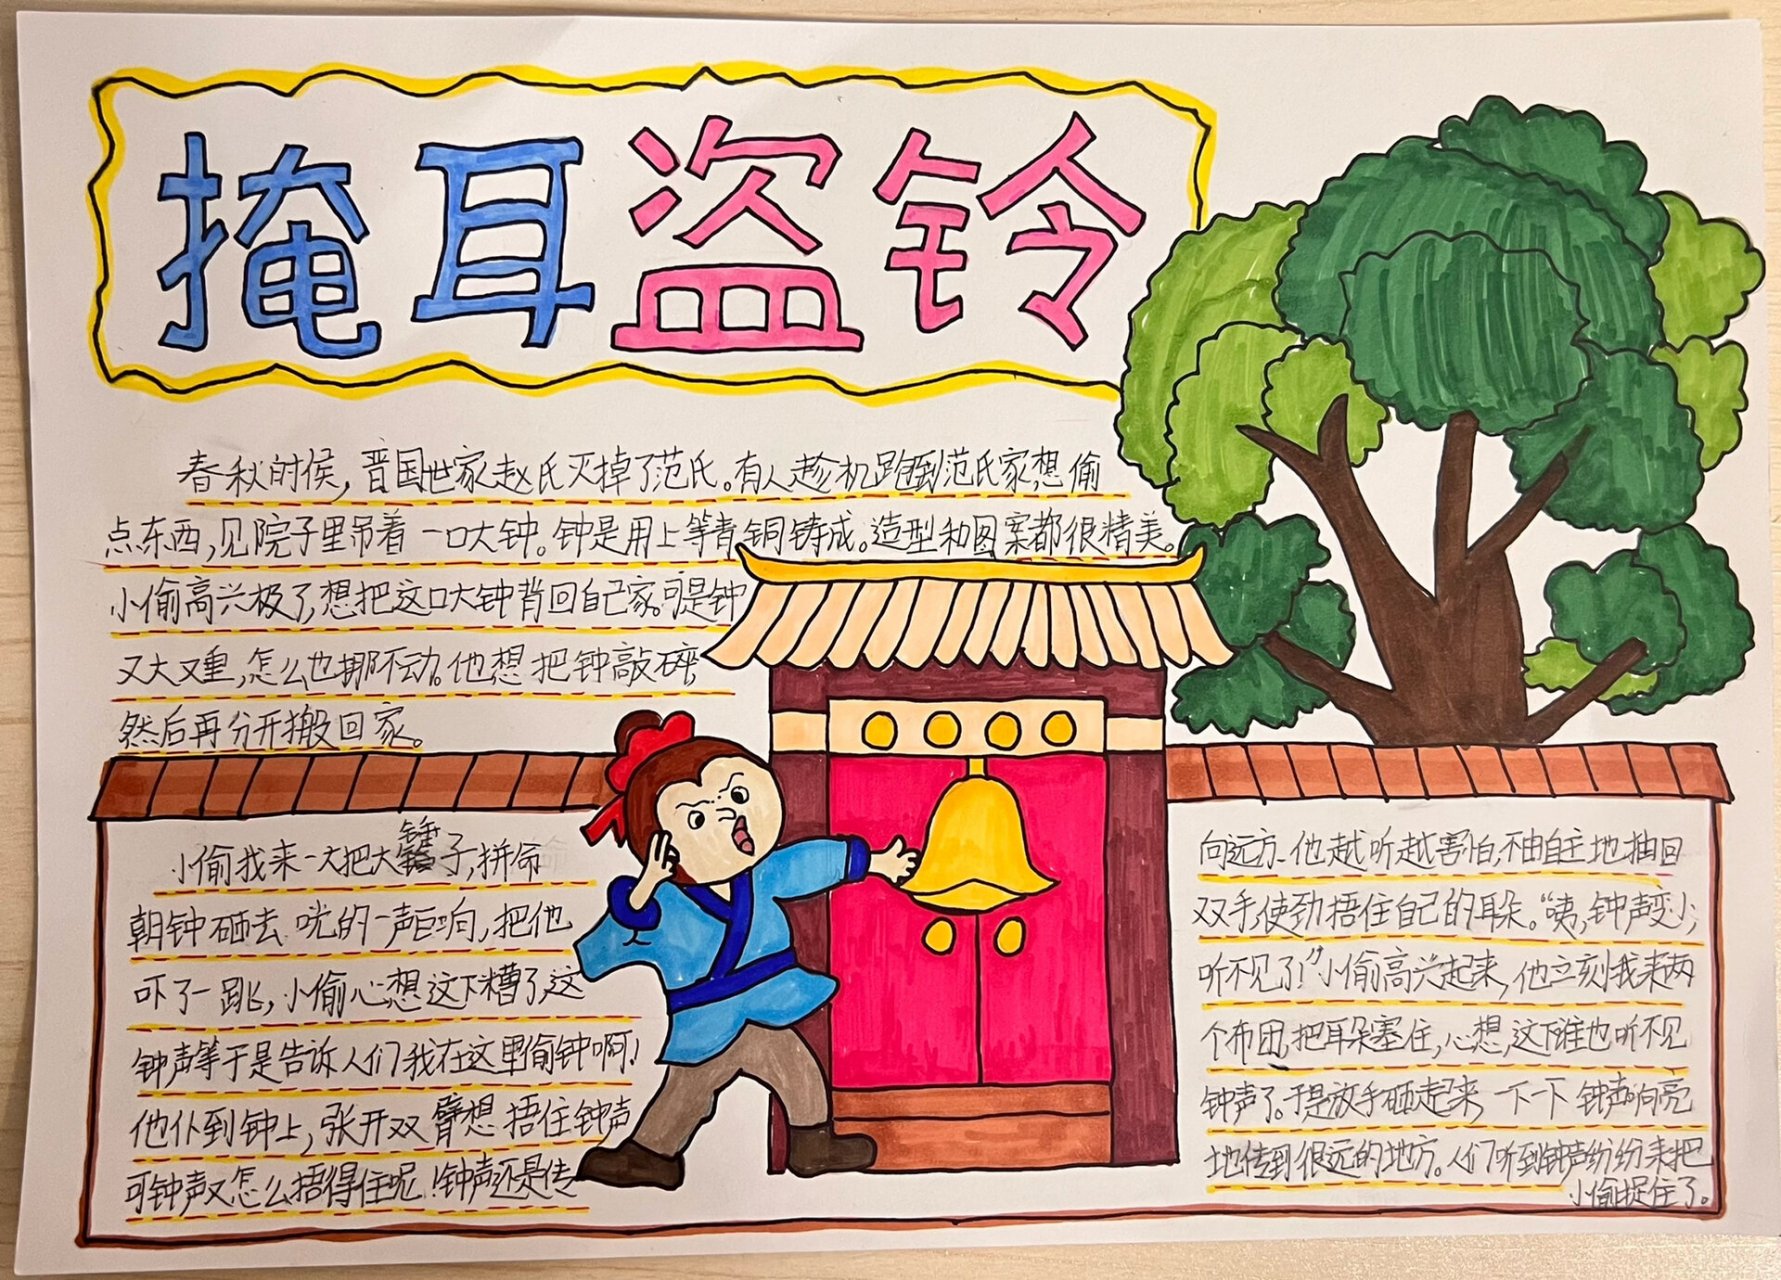 掩耳盗铃
春秋时侯，晋国世家赵氏灭掉了范氏。有人趁机跑到范氏家，想偷
点东西，见院子里吊着一口大钟。钟是用上等青铜铸成。造型和图案都很精美。
小偷高兴极了，想把这口大钟背回自己家。可是钟
又大又重，怎么也挪不动。他想把钟敲碎，
然后再分开搬回家。
小偷我来一大把大锤子，拼命
朝钟砸去 咣的一声巨响，把他
吓了一跳，小偷心想这下糟了，这
钟声等于是告诉人们我在这里偷钟啊！
他仆到钟上，张开双臂想捂住钟声
可钟声又怎么捂得住呢！钟声还是传
向远方、他越听越害怕，不由自主地抽回
双手，使劲捂住自己的耳朵。“咦，钟声变小，
听不见了！”小偷高兴起来，他立刻我来两
个布团，把耳朵塞住，心想，这下谁也听不见
钟声了。于是放手砸起来，一下一下 钟声响亮
地传到很远的地方。人们听到钟声纷纷来把
小偷捉住了。